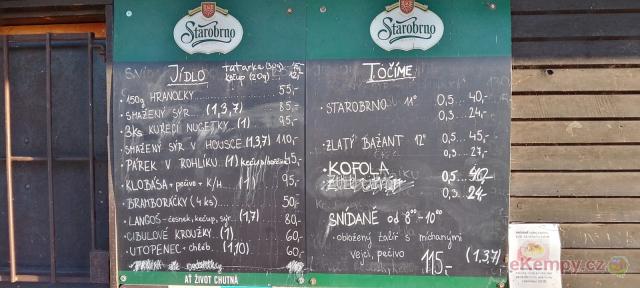 Starobrno
JÍDLO tatarka (50g) 15,-
kečup (20g) 12,-
• 150g HRANOLKY 55,-
• SMAŽENÝ SÝR (1,3,7) 85,-
• 3KS KUŘECÍ NUGETKY (1) 95,-
SMAŽENÝ SÝR V HOUSCE (1,3,7) 110,-
• PÁREK V ROHLÍKU (1) kečup/hořčice 45,-
• KLOBÁSA + pečivo + K/H (1) 95,-
BRAMBORÁČKY (4 ks) 50,-
• LANGOŠ - česnek, kečup, sýr (1,7) 80,-
• CIBULOVÉ KROUŽKY (1) 60,-
• UTOPENEC + chléb (1,10) 60,-
AŤ ŽIVOT CHUTNÁ
Starobrno
TOČÍME
• STAROBRNO 11° 0,5... 40,-
0,3... 24,-
• ZLATÝ BAŽANT 12° 0,5... 45,-
0,3... 27,-
• KOFOLA 0,5... 40,-
0,3... 24,-
SNÍDANĚ od 8⁰⁰ - 10⁰⁰
• obložený talíř s míchanými
vejci, pečivo 115,- (1,3,7)
eKempy.cz